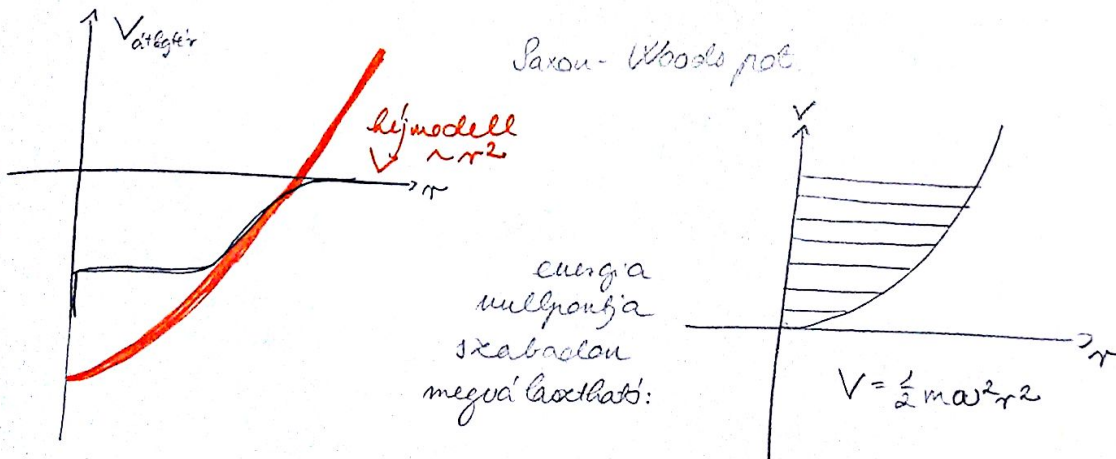 V átlagtér
Saxon-Woods pot.
héjmodell
V ~ r²
r
energia
nullpontja
szabadon
megválasztható:
V
r
V = ½ mω²r²